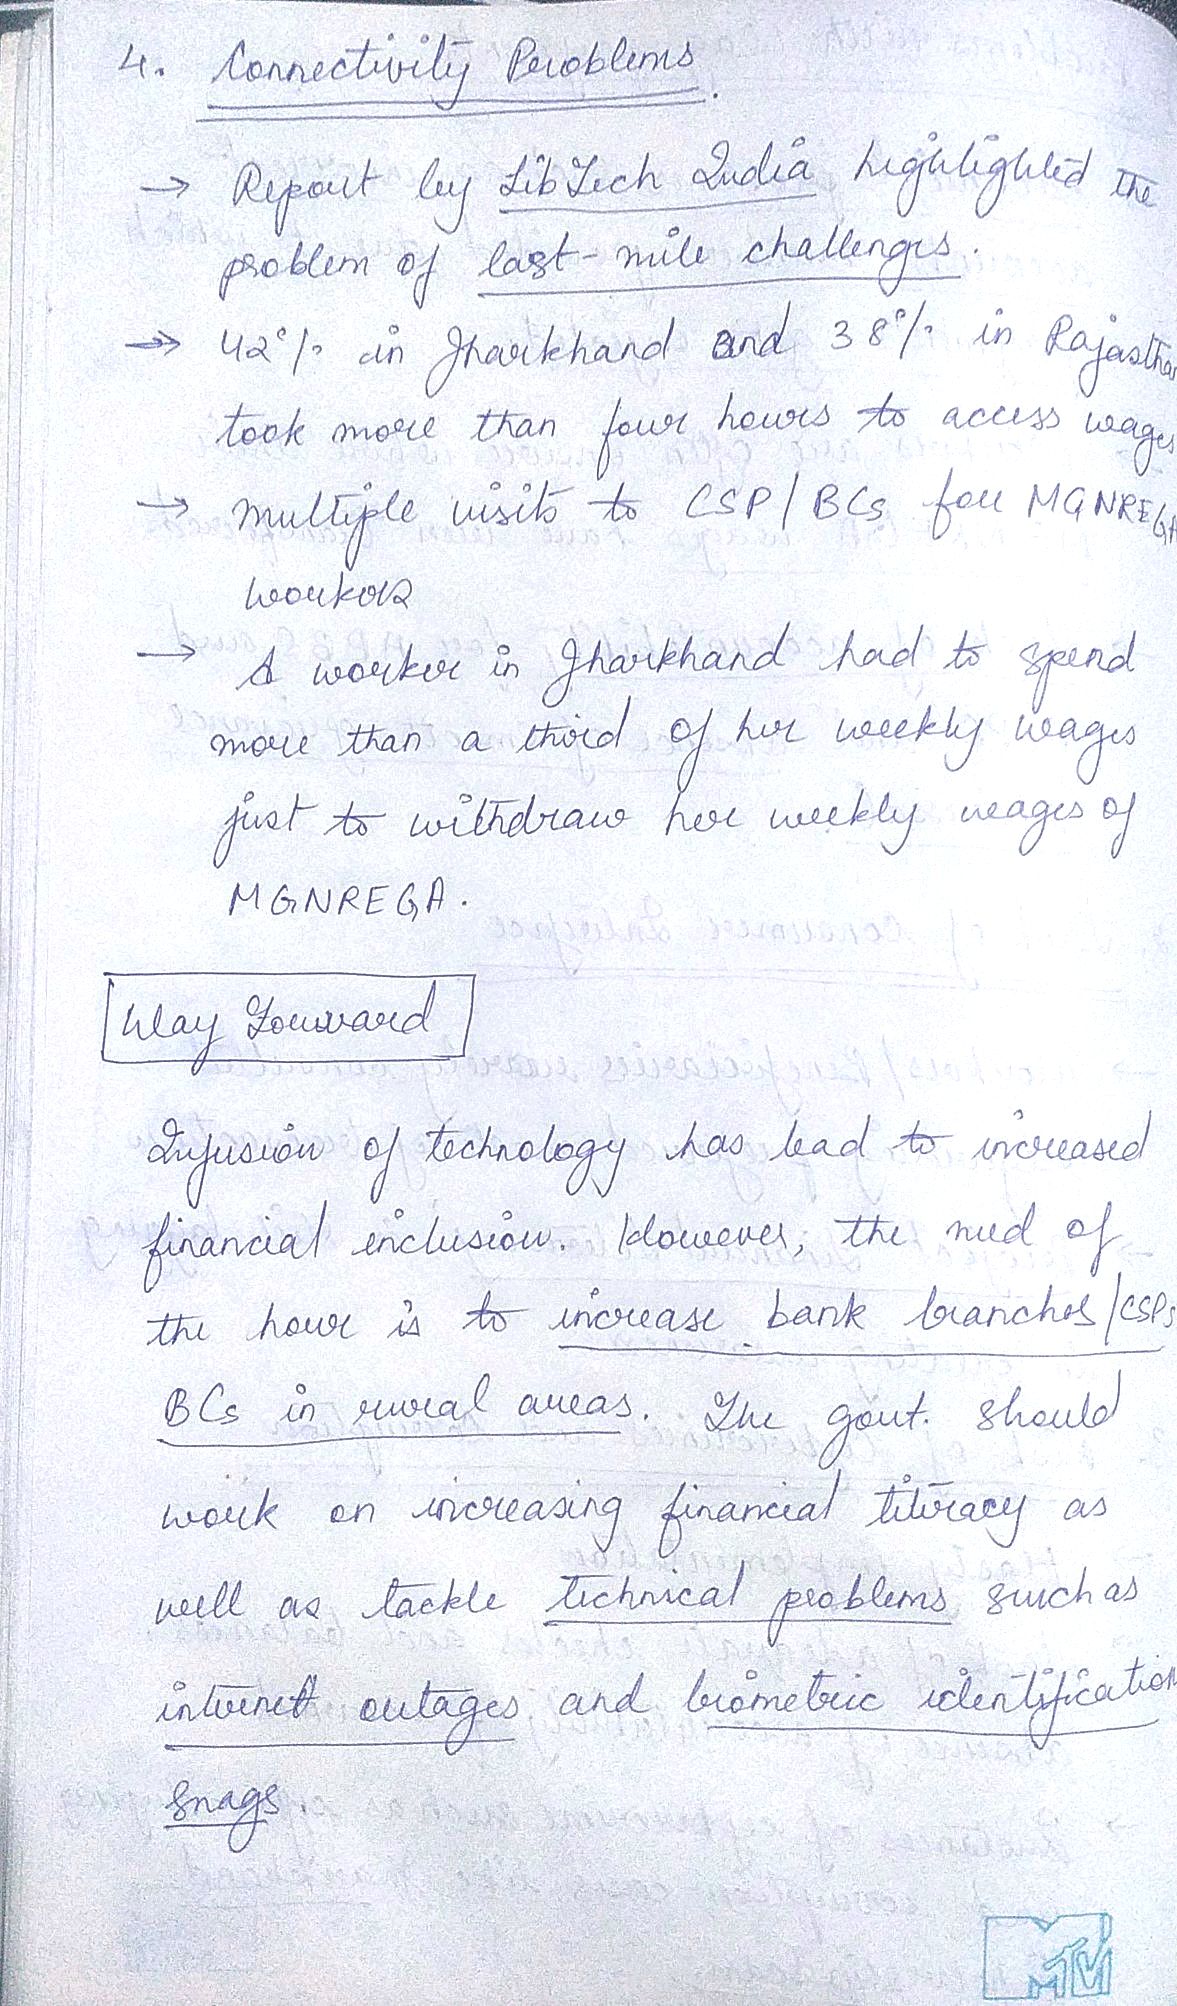 4. Connectivity Problems.
→ Report by LibTech India highlighted the
problem of last-mile challenges.
→ 42% in Jharkhand and 38% in Rajasthan
took more than four hours to access wages
→ Multiple visits to CSP/BCs for MGNREGA
workers
→ A worker in Jharkhand had to spend
more than a third of her weekly wages
just to withdraw her weekly wages of
MGNREGA.
Way Forward
Infusion of technology has lead to increased
financial inclusion. However, the need of
the hour is to increase bank branches/CSPs
BCs in rural areas. The govt. should
work on increasing financial literacy as
well as tackle technical problems such as
internet outages and biometric identification
snags.
MTV